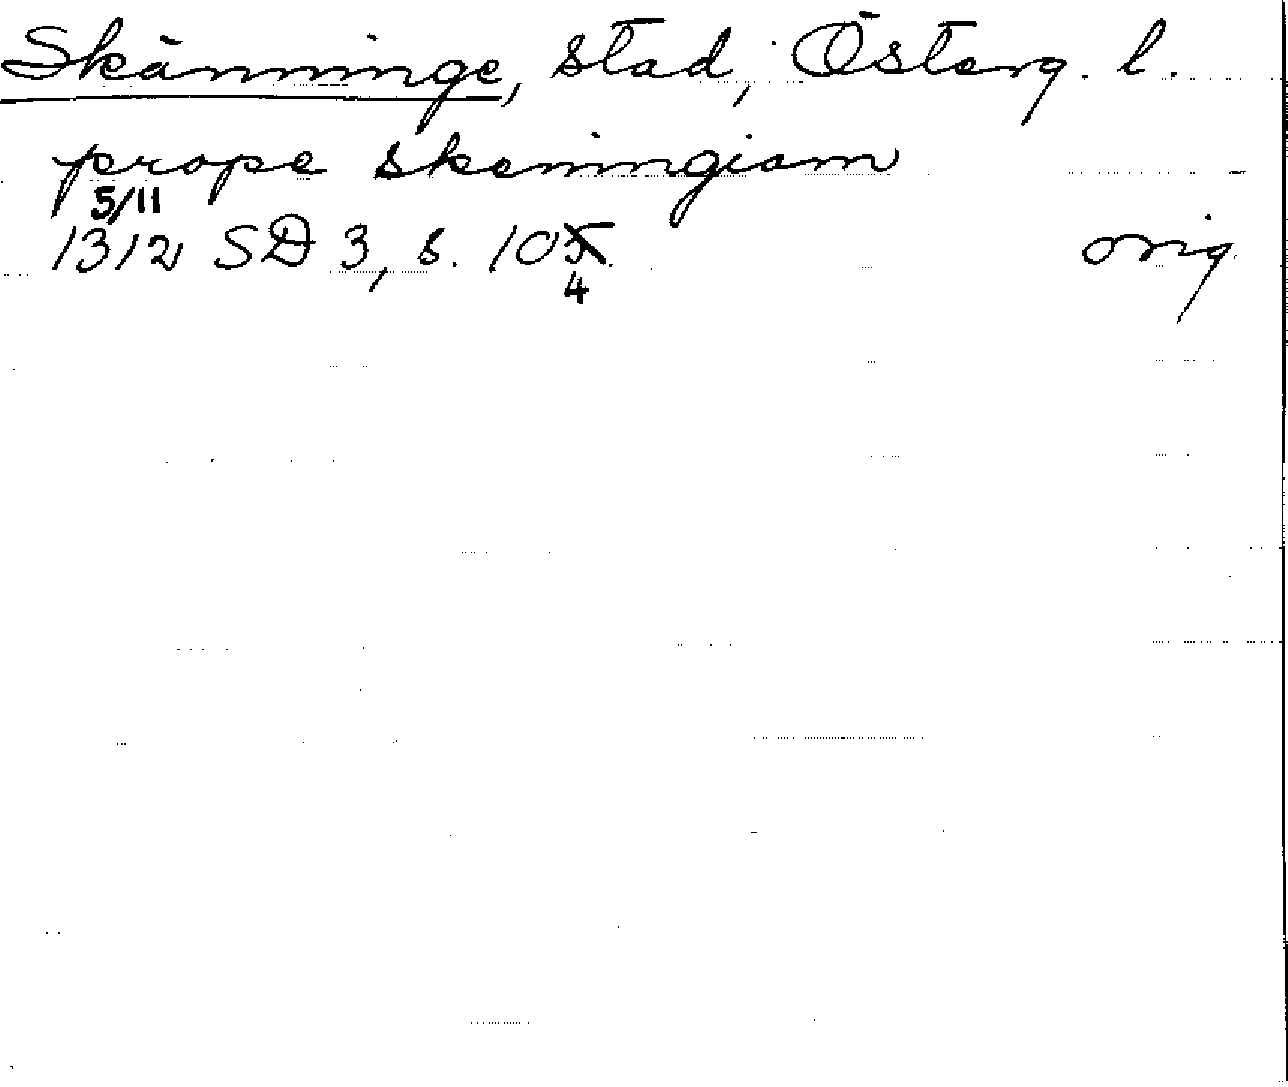 Skänninge, stad, Österg. l.
prope skeningiam
5/11
1312 SD 3, s. 105. orig.
4